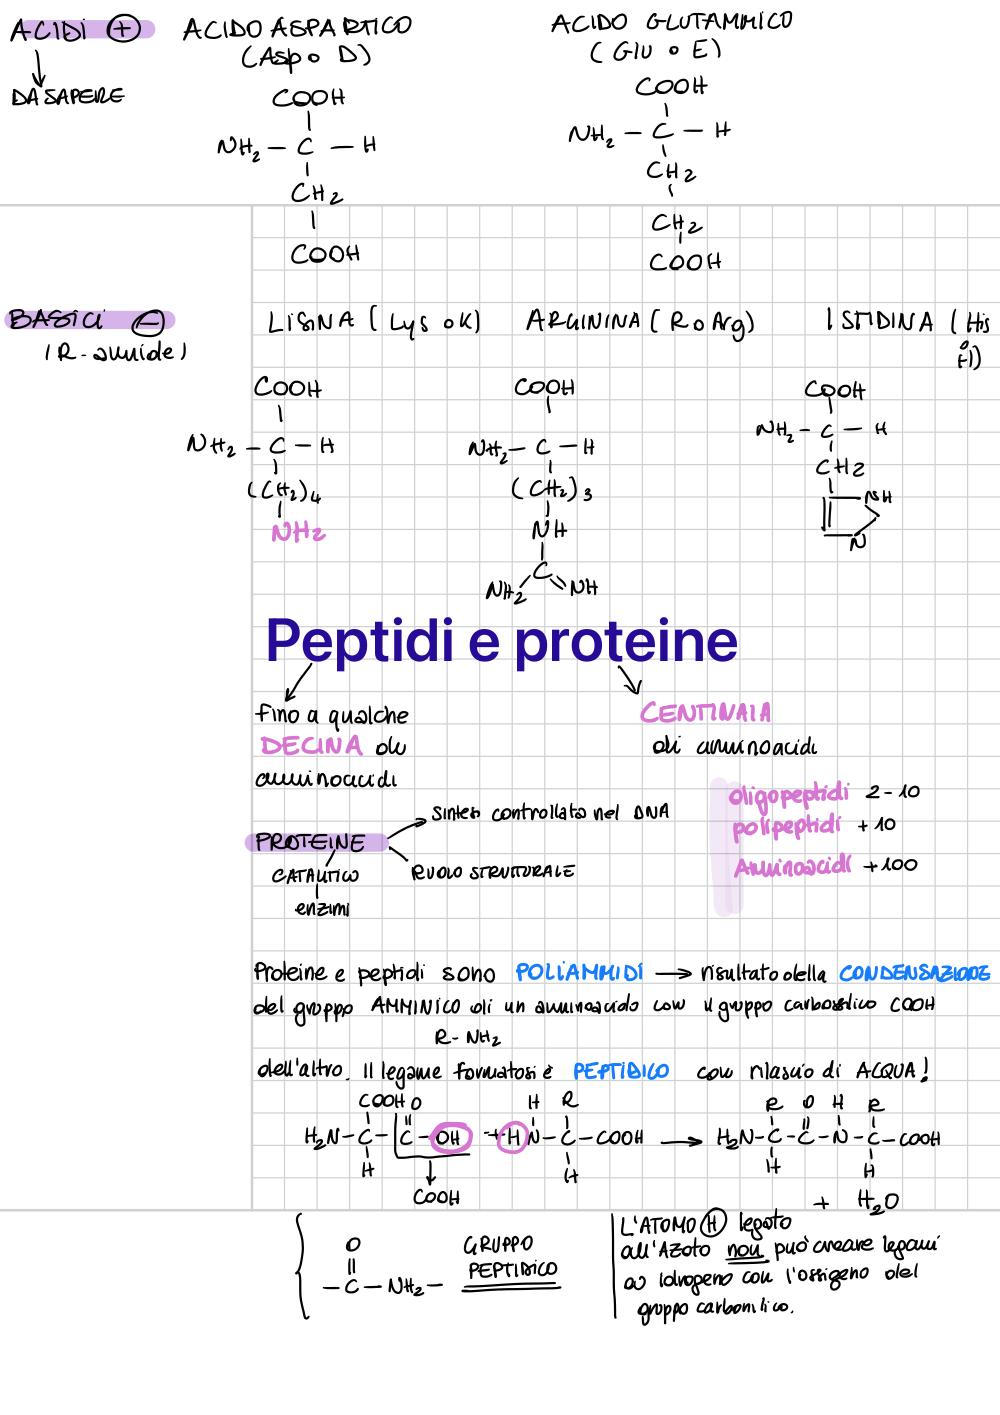 ACIDI +
DA SAPERE
ACIDO ASPARTICO
(Asp o D)
COOH
NH2 — C — H
CH2
COOH
ACIDO GLUTAMMICO
(Glu o E)
COOH
NH2 — C — H
CH2
CH2
COOH
BASICI −
(R-amide)
LISINA (Lys o K)
COOH
NH2 — C — H
(CH2)4
NH2
ARGININA (R o Arg)
COOH
NH2 — C — H
(CH2)3
NH
C
NH2 NH
ISTIDINA (His
o
H)
COOH
NH2 — C — H
CH2
NH
N
Peptidi e proteine
fino a qualche
DECINA di
aminoacidi
CENTINAIA
di aminoacidi
oligopeptidi 2-10
polipeptidi +10
Aminoacidi +100
PROTEINE
sintesi controllata nel DNA
RUOLO STRUTTURALE
CATALITICO
enzimi
Proteine e peptidi sono POLIAMMIDI → risultato della CONDENSAZIONE
del gruppo AMMINICO di un aminoacido con il gruppo carbossilico COOH
R-NH2
dell'altro. Il legame formatosi è PEPTIDICO con rilascio di ACQUA!
COOH O H R R O H R
H2N-C-C-OH + H N-C-COOH → H2N-C-C-N-C-COOH
H H H H
COOH
+ H2O
O
-C-NH2-
GRUPPO
PEPTIDICO
L'ATOMO H legato
all'AZOTO non può creare legami
a idrogeno con l'ossigeno del
gruppo carbonilico.